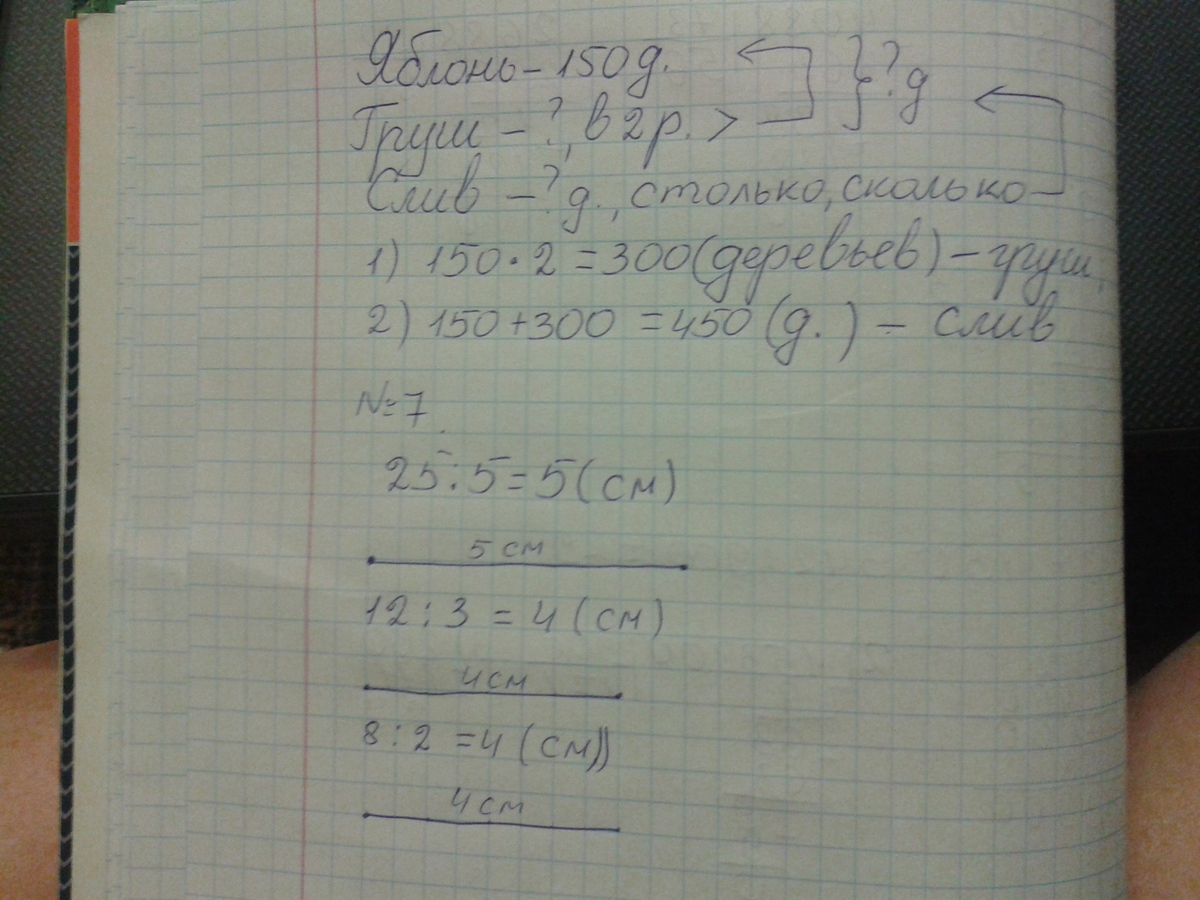 Яблонь – 150 д. } ? д
Груш – ?, в 2 р. >
Слив – ? д., столько, сколько
1) 150 · 2 = 300 (деревьев) – груш.
2) 150 + 300 = 450 (д.) – слив
№ 7
25 : 5 = 5 (см)
5 см
12 : 3 = 4 (см)
4 см
8 : 2 = 4 (см))
4 см